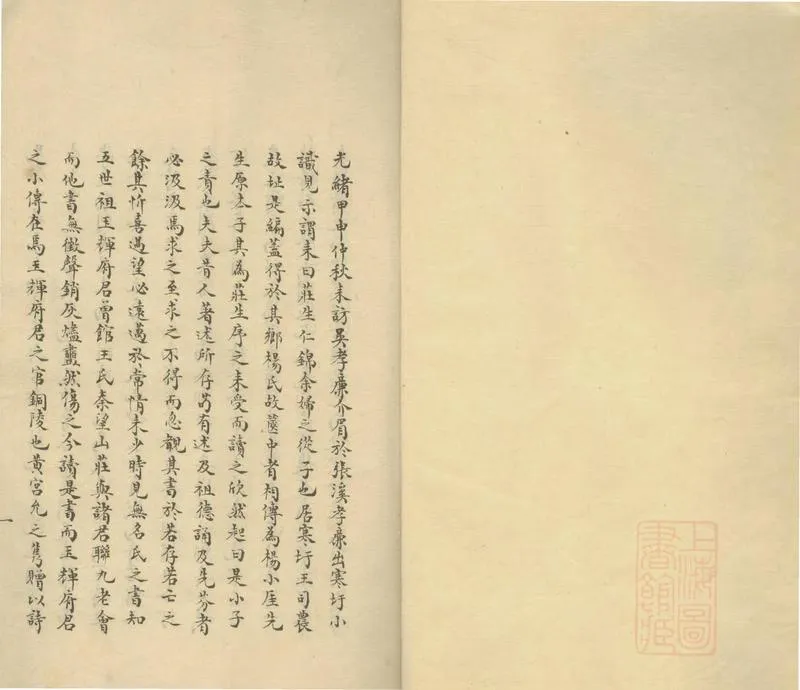 光緒甲申仲秋耒訪吳孝廉介眉於張溪孝廉出寒圩小
識見示謂耒曰莊生仁錦余婦之從子也居寒圩王司農
故址是編蓋得於其鄉楊氏故簏中者相傳為楊小厓先
生原本子其為莊生序之耒受而讀之欣然起曰是小子
之責也夫夫昔人著述所存苟有述及祖德誦及先芬者
必汲汲焉求之至求之不得而忽觀其書於若存若亡之
餘其忻喜過望必遠邁於常情耒少時見無名氏之書知
五世祖玉輝府君曾館王氏秦望山莊與諸君聯九老會
而他書無徵聲銷灰燼衋然傷之今讀是書而玉輝府君
之小傳在焉玉輝府君之官銅陵也黃宮允之雋贈以詩
一
上海圖書館藏